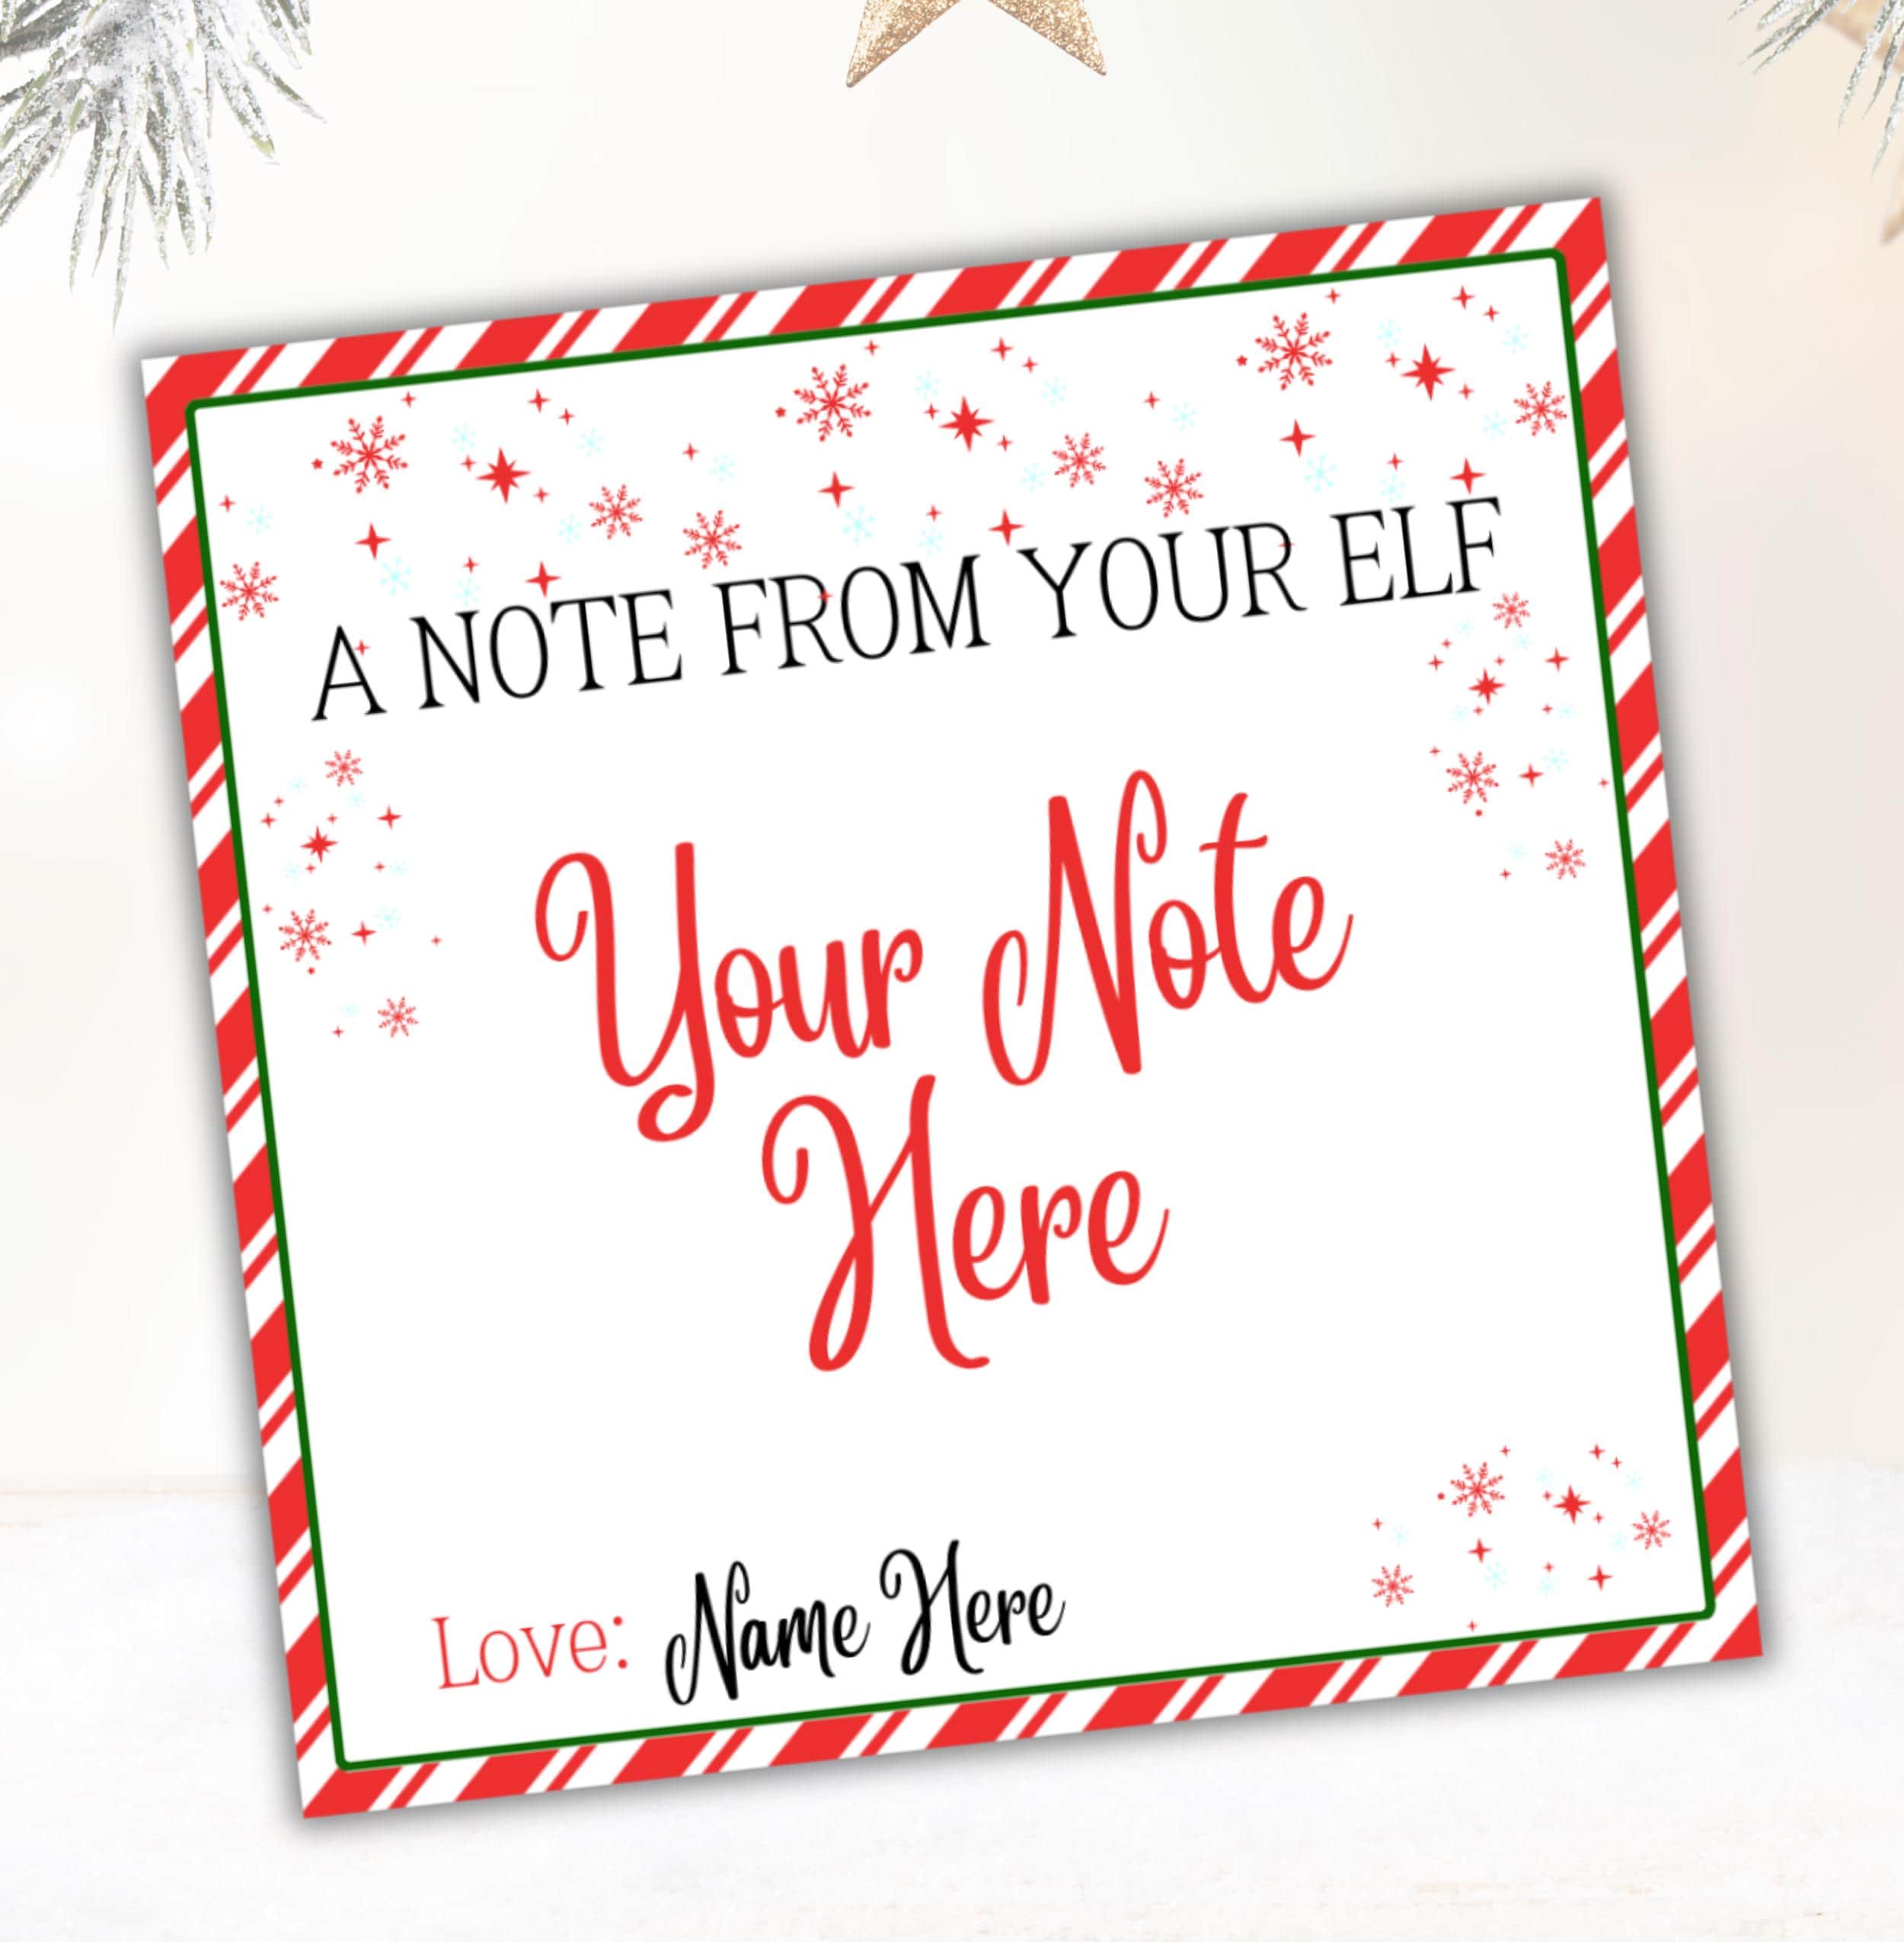 A NOTE FROM YOUR ELF
Your Note
Here
Love: Name Here